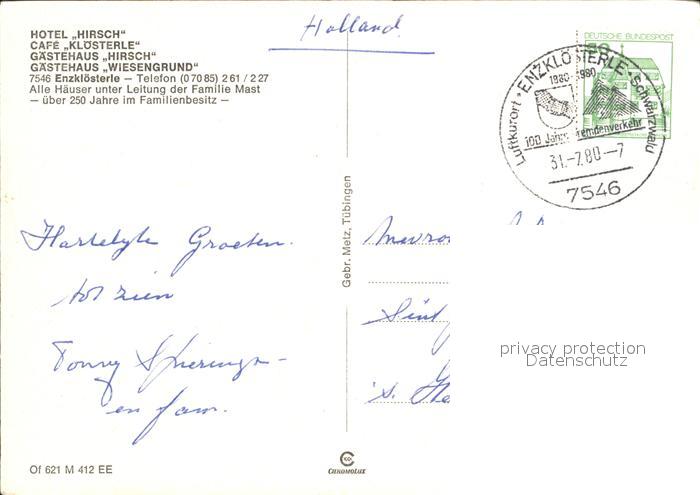 Holland.
HOTEL „HIRSCH“
CAFÉ „KLÖSTERLE“
GÄSTEHAUS „HIRSCH“
GÄSTEHAUS „WIESENGRUND“
7546 Enzklösterle – Telefon (0 70 85) 2 61 / 2 27
Alle Häuser unter Leitung der Familie Mast
– über 250 Jahre im Familienbesitz –
DEUTSCHE BUNDESPOST
Luftkurort * ENZKLÖSTERLE * Schwarzwald
1880-1980
100 Jahre Fremdenverkehr
31.-7.80-7
7546
Hartelyke Groeten.
tot ziens
Tonny Spierings-
en fam.
Gebr. Metz, Tübingen
Mevro
Sint
's. He
privacy protection
Datenschutz
Of 621 M 412 EE
CHROMOLUX